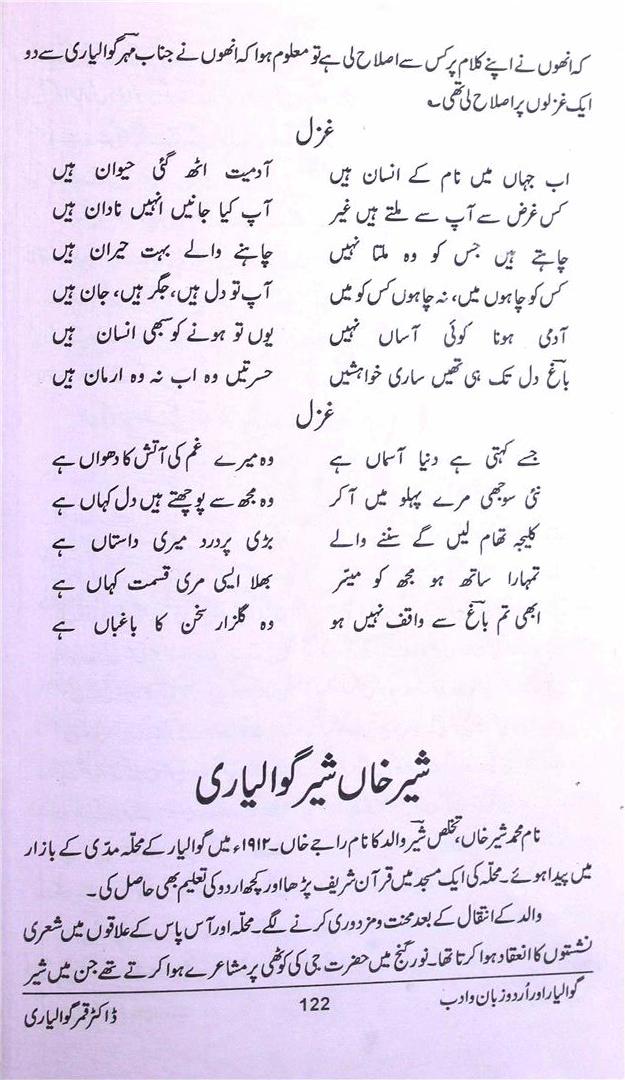 کہ انھوں نے اپنے کلام پر کس سے اصلاح لی ہے تو معلوم ہوا کہ انھوں نے جناب مہر گوالیاری سے دو
ایک غزلوں پر اصلاح لی تھی۔
غزل
اب جہاں میں نام کے انسان ہیں آدمیت اٹھ گئی حیوان ہیں
کس غرض سے آپ سے ملتے ہیں غیر آپ کیا جانیں انہیں نادان ہیں
چاہتے ہیں جس کو وہ ملتا نہیں چاہنے والے بہت حیران ہیں
کس کو چاہوں میں، نہ چاہوں کس کو میں آپ تو دل ہیں، جگر ہیں، جان ہیں
آدمی ہونا کوئی آساں نہیں یوں تو ہونے کو سبھی انسان ہیں
باغؔ دل تک ہی تھیں ساری خواہشیں حسرتیں وہ اب نہ وہ ارمان ہیں
غزل
جسے کہتی ہے دنیا آسماں ہے وہ میرے غم کی آتش کا دھواں ہے
نئی سوجھی مرے پہلو میں آ کر وہ مجھ سے پوچھتے ہیں دل کہاں ہے
کلیجہ تھام لیں گے سننے والے بڑی پردرد میری داستاں ہے
تمہارا ساتھ ہو مجھ کو میسّر بھلا ایسی مری قسمت کہاں ہے
ابھی تم باغؔ سے واقف نہیں ہو وہ گلزار سخن کا باغباں ہے
شیر خاں شیر گوالیاری
نام محمد شیر خاں، تخلص شیرؔ والد کا نام راجے خاں۔ ۱۹۱۲ء میں گوالیار کے محلہ مدّی کے بازار
میں پیدا ہوئے۔ محلہ کی ایک مسجد میں قرآن شریف پڑھا اور کچھ اردو کی تعلیم بھی حاصل کی۔
والد کے انتقال کے بعد محنت و مزدوری کرنے لگے۔ محلہ اور آس پاس کے علاقوں میں شعری
نشستوں کا انعقاد ہوا کرتا تھا۔ نور گنج میں حضرت جی کی کوٹھی پر مشاعرے ہوا کرتے تھے جن میں شیر
گوالیار اور اُردو زبان و ادب 122 ڈاکٹر قمر گوالیاری